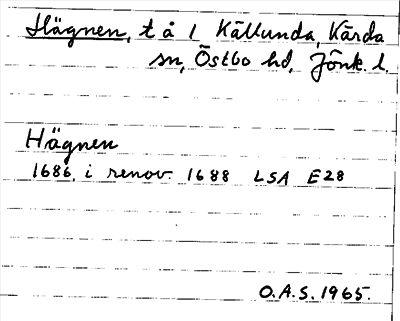 Hägnen, t å 1 Källunda, Kärda
sn, Östbo hd, Jönk. l.
Hägnen
1686 i renov. 1688 LSA E28
O.A.S. 1965.